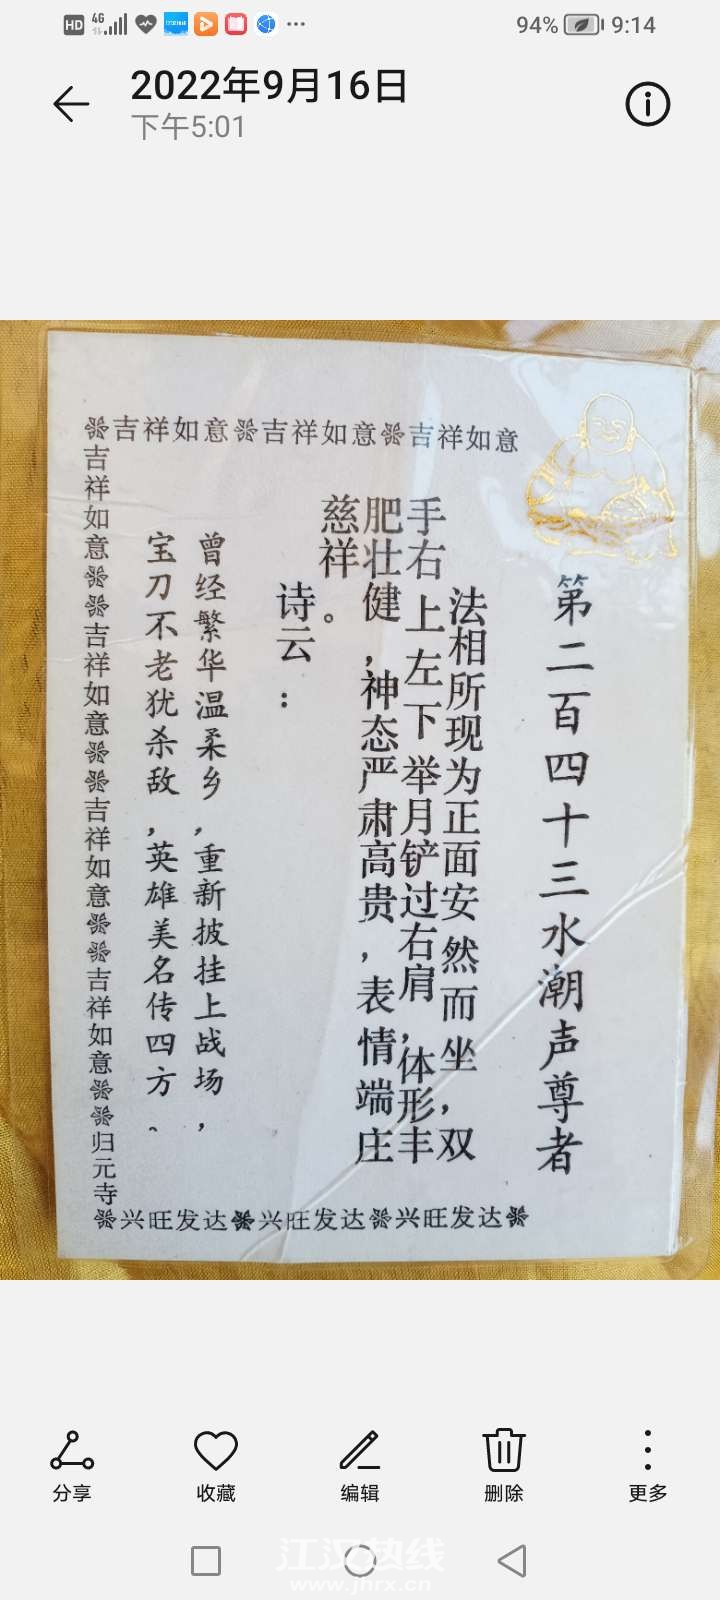 HD 4G 94% 9:14
2022年9月16日
下午5:01
吉祥如意吉祥如意吉祥如意
第二百四十三水潮声尊者
法相所现为正面安然而坐，双
手右上左下举月铲过右肩，体形丰
肥壮健，神态严肃高贵，表情端庄
慈祥。
诗云：
曾经繁华温柔乡，重新披挂上战场，
宝刀不老犹杀敌，英雄美名传四方。
吉祥如意吉祥如意吉祥如意吉祥如意归元寺
兴旺发达兴旺发达兴旺发达
分享 收藏 编辑 删除 更多
江汉热线
www.jhrx.cn